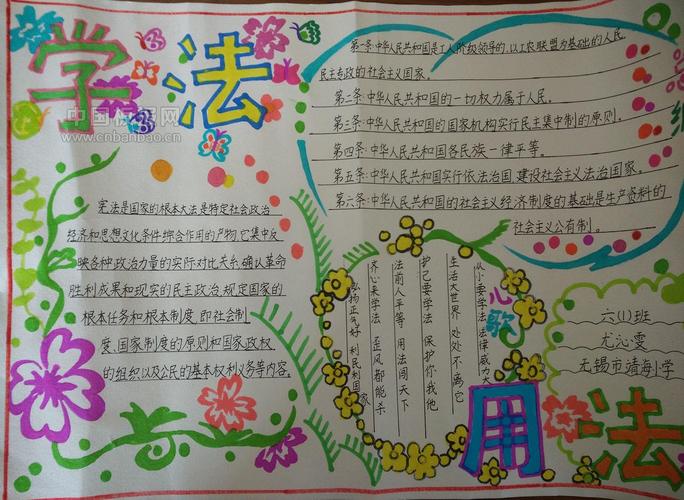 学法
中国板报网
www.cnbanbao.cn
第一条:中华人民共和国是工人阶级领导的,以工农联盟为基础的人民
民主专政的社会主义国家。
第二条:中华人民共和国的一切权力属于人民。
第三条:中华人民共和国的国家机构实行民主集中制的原则。
第四条:中华人民共和国各民族一律平等。
第五条:中华人民共和国实行依法治国,建设社会主义法治国家。
第六条:中华人民共和国的社会主义经济制度的基础是生产资料的
社会主义公有制。
宪法是国家的根本大法是特定社会政治
经济和思想文化条件综合作用的产物,它集中反
映各种政治力量的实际对比关系,确认革命
胜利成果和现实的民主政治,规定国家的
根本任务和根本制度,即社会制
度、国家制度的原则和国家政权
的组织以及公民的基本权利义务等内容。
心歌
从小要学法法律威力大
生活大世界 处处不离它
护己要学法 保护你我他
法前人平等 用法闯天下
齐心来学法 歪风都能杀
弘扬正气好 利民利国家
六(1)班
尤沁雯
无锡市靖海小学
用法